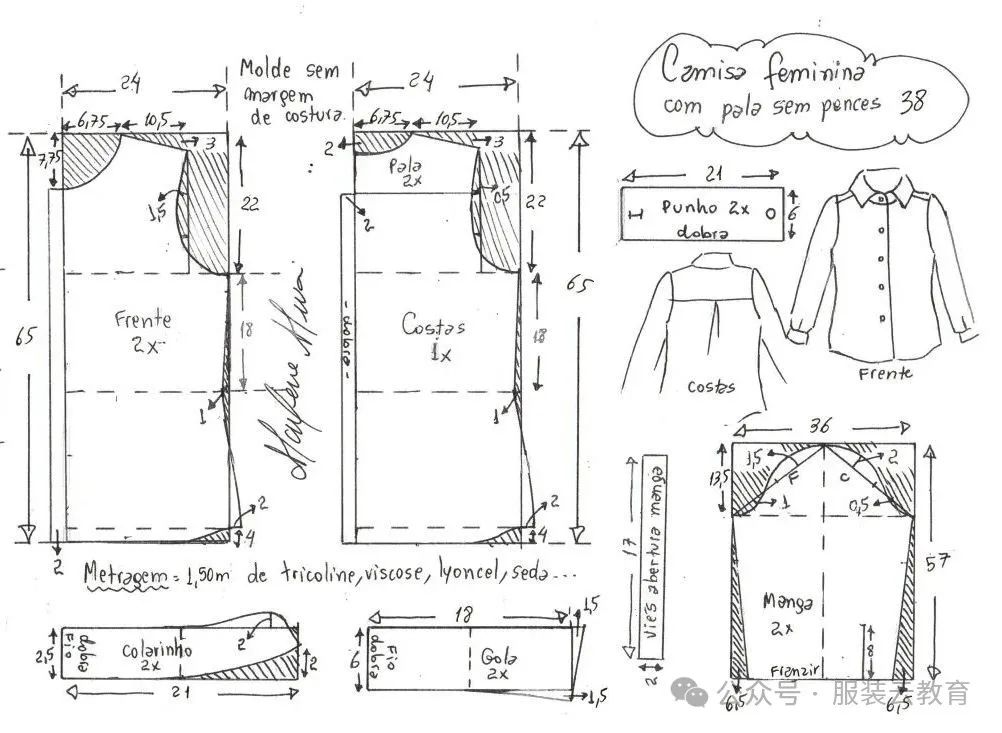 Camisa feminina
com pala sem pences 38
Molde sem
margem
de costura.
24
6,75
10,5
3
7,75
1,5
22
65
18
Frente
2x
1
2
4
2
24
6,75
10,5
3
2
Pala
2x
0,5
22
2
65
18
- dobra -
Costas
1x
1
2
4
Marlene Mura
21
Punho 2x
dobra
6
Costas
Frente
36
13,5
1,5
F
C
2
1
0,5
57
Manga
2x
8
Franzir
6,5
6,5
17
Viés abertura manga
2
Metragem = 1,50m de tricoline, viscose, lyoncel, seda...
2,5
Fio
dobra
Colarinho
2x
2
2
21
18
1,5
6
Fio
dobra
Gola
2x
1,5
公众号·服装云教育